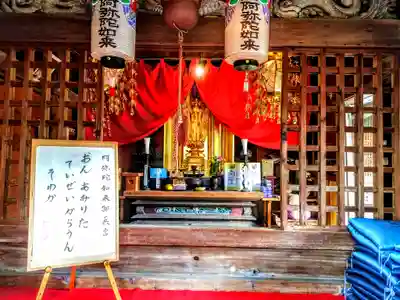 阿弥陀如来
阿弥陀如来
阿弥陀如来御真言
おん あみりた
ていぜい からうん
そわか